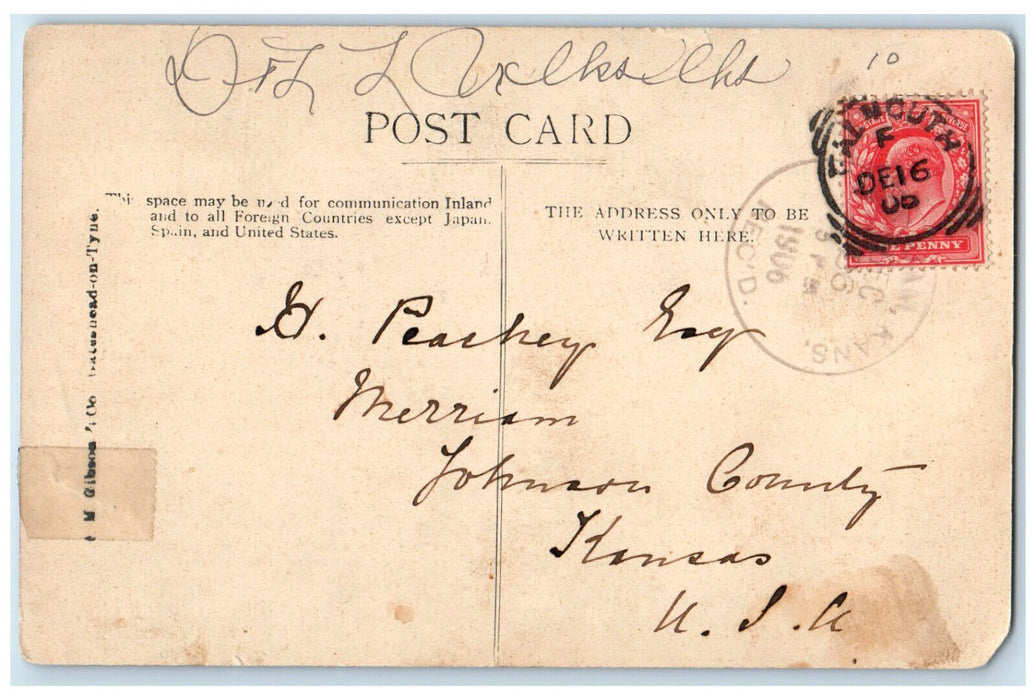 10
POST CARD
This space may be used for communication Inland
and to all Foreign Countries except Japan,
Spain, and United States.
THE ADDRESS ONLY TO BE
WRITTEN HERE.
FALMOUTH
F
DE 16
06
ONE PENNY
DEC
26
1906
KANS.
REC'D.
M Gibson & Co Gateshead-on-Tyne.
H. Peachey Esq
Merriam
Johnson County
Kansas
U. S. A